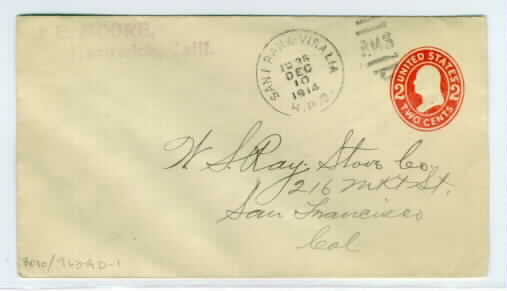 E. MOORE,
Calif.
SAN FRAN & VISALIA
DEC
10
1914
R.P.O.
RMS
UNITED STATES
2 2
TWO CENTS
W. S. Ray. Stove Co,
216 MKT St,
San Francisco
Cal